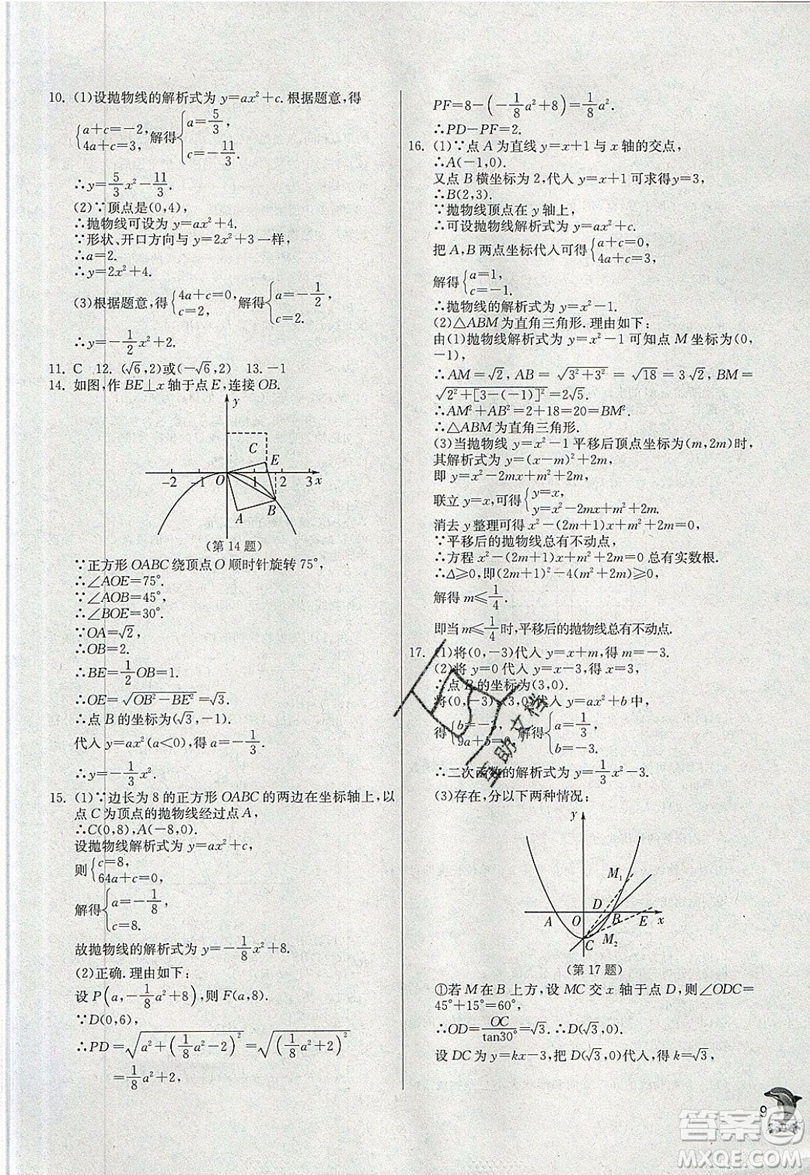 10. (1)设抛物线的解析式为 y=ax²+c. 根据题意,得
{a+c=-2, 4a+c=3, 解得{a=5/3, c=-11/3.
∴y=5/3x²-11/3.
(2)∵顶点是(0,4),
∴抛物线可设为 y=ax²+4.
∵形状、开口方向与 y=2x²+3 一样,
∴a=2.
∴y=2x²+4.
(3)根据题意,得{4a+c=0, c=2, 解得{a=-1/2, c=2.
∴y=-1/2x²+2.
11. C 12. (√6,2)或(-√6,2) 13. -1
14. 如图,作 BE⊥x 轴于点 E,连接 OB.
y
C
E
-2 -1 O 1 2 3 x
A B
(第 14 题)
∵正方形 OABC 绕顶点 O 顺时针旋转 75°,
∴∠AOE=75°.
∵∠AOB=45°,
∴∠BOE=30°.
∵OA=√2,
∴OB=2.
∴BE=1/2OB=1.
∴OE=√(OB²-BE²)=√3.
∴点 B 的坐标为(√3,-1).
代入 y=ax²(a<0),得 a=-1/3.
∴y=-1/3x².
15. (1)∵边长为 8 的正方形 OABC 的两边在坐标轴上,以
点 C 为顶点的抛物线经过点 A,
∴C(0,8),A(-8,0).
设抛物线解析式为 y=ax²+c,
则{c=8, 64a+c=0,
解得{a=-1/8, c=8.
故抛物线的解析式为 y=-1/8x²+8.
(2)正确. 理由如下:
设 P(a,-1/8a²+8),则 F(a,8).
∵D(0,6),
∴PD=√(a²+(1/8a²-2)²)=√((1/8a²+2)²)
=1/8a²+2,
PF=8-(-1/8a²+8)=1/8a².
∴PD-PF=2.
16. (1)∵点 A 为直线 y=x+1 与 x 轴的交点,
∴A(-1,0).
又点 B 横坐标为 2,代入 y=x+1 可求得 y=3,
∴B(2,3).
∵抛物线顶点在 y 轴上,
∴可设抛物线解析式为 y=ax²+c,
把 A,B 两点坐标代入可得{a+c=0, 4a+c=3,
解得{a=1, c=-1.
∴抛物线的解析式为 y=x²-1.
(2)△ABM 为直角三角形. 理由如下:
由(1)抛物线解析式为 y=x²-1 可知点 M 坐标为(0,
-1),
∴AM=√2,AB=√(3²+3²)=√18=3√2,BM=
√(2²+[3-(-1)]²)=2√5.
∴AM²+AB²=2+18=20=BM².
∴△ABM 为直角三角形.
(3)当抛物线 y=x²-1 平移后顶点坐标为(m,2m)时,
其解析式为 y=(x-m)²+2m,
即 y=x²-2mx+m²+2m,
联立 y=x,可得{y=x, y=x²-2mx+m²+2m.
消去 y 整理可得 x²-(2m+1)x+m²+2m=0,
∵平移后的抛物线总有不动点,
∴方程 x²-(2m+1)x+m²+2m=0 总有实数根.
∴Δ≥0,即(2m+1)²-4(m²+2m)≥0,
解得 m≤1/4.
即当 m≤1/4时,平移后的抛物线总有不动点.
17. (1)将(0,-3)代入 y=x+m,得 m=-3.
(2)将 y=0 代入 y=x-3,得 x=3,
∴点 B 的坐标为(3,0).
将(0,-3),(3,0)代入 y=ax²+b 中,
得{b=-3, 9a+b=0, 解得{a=1/3, b=-3.
∴二次函数的解析式为 y=1/3x²-3.
(3)存在,分以下两种情况:
y
M₁
D
A O B E x
C M₂
(第 17 题)
①若 M 在 B 上方,设 MC 交 x 轴于点 D,则∠ODC=
45°+15°=60°,
∴OD=OC/tan30°=√3. ∴D(√3,0).
设 DC 为 y=kx-3,把 D(√3,0)代入,得 k=√3,
互助文档
9
答案圈
MXQE.COM